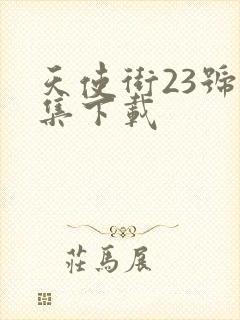 天使街23號
集下載
莊馬展